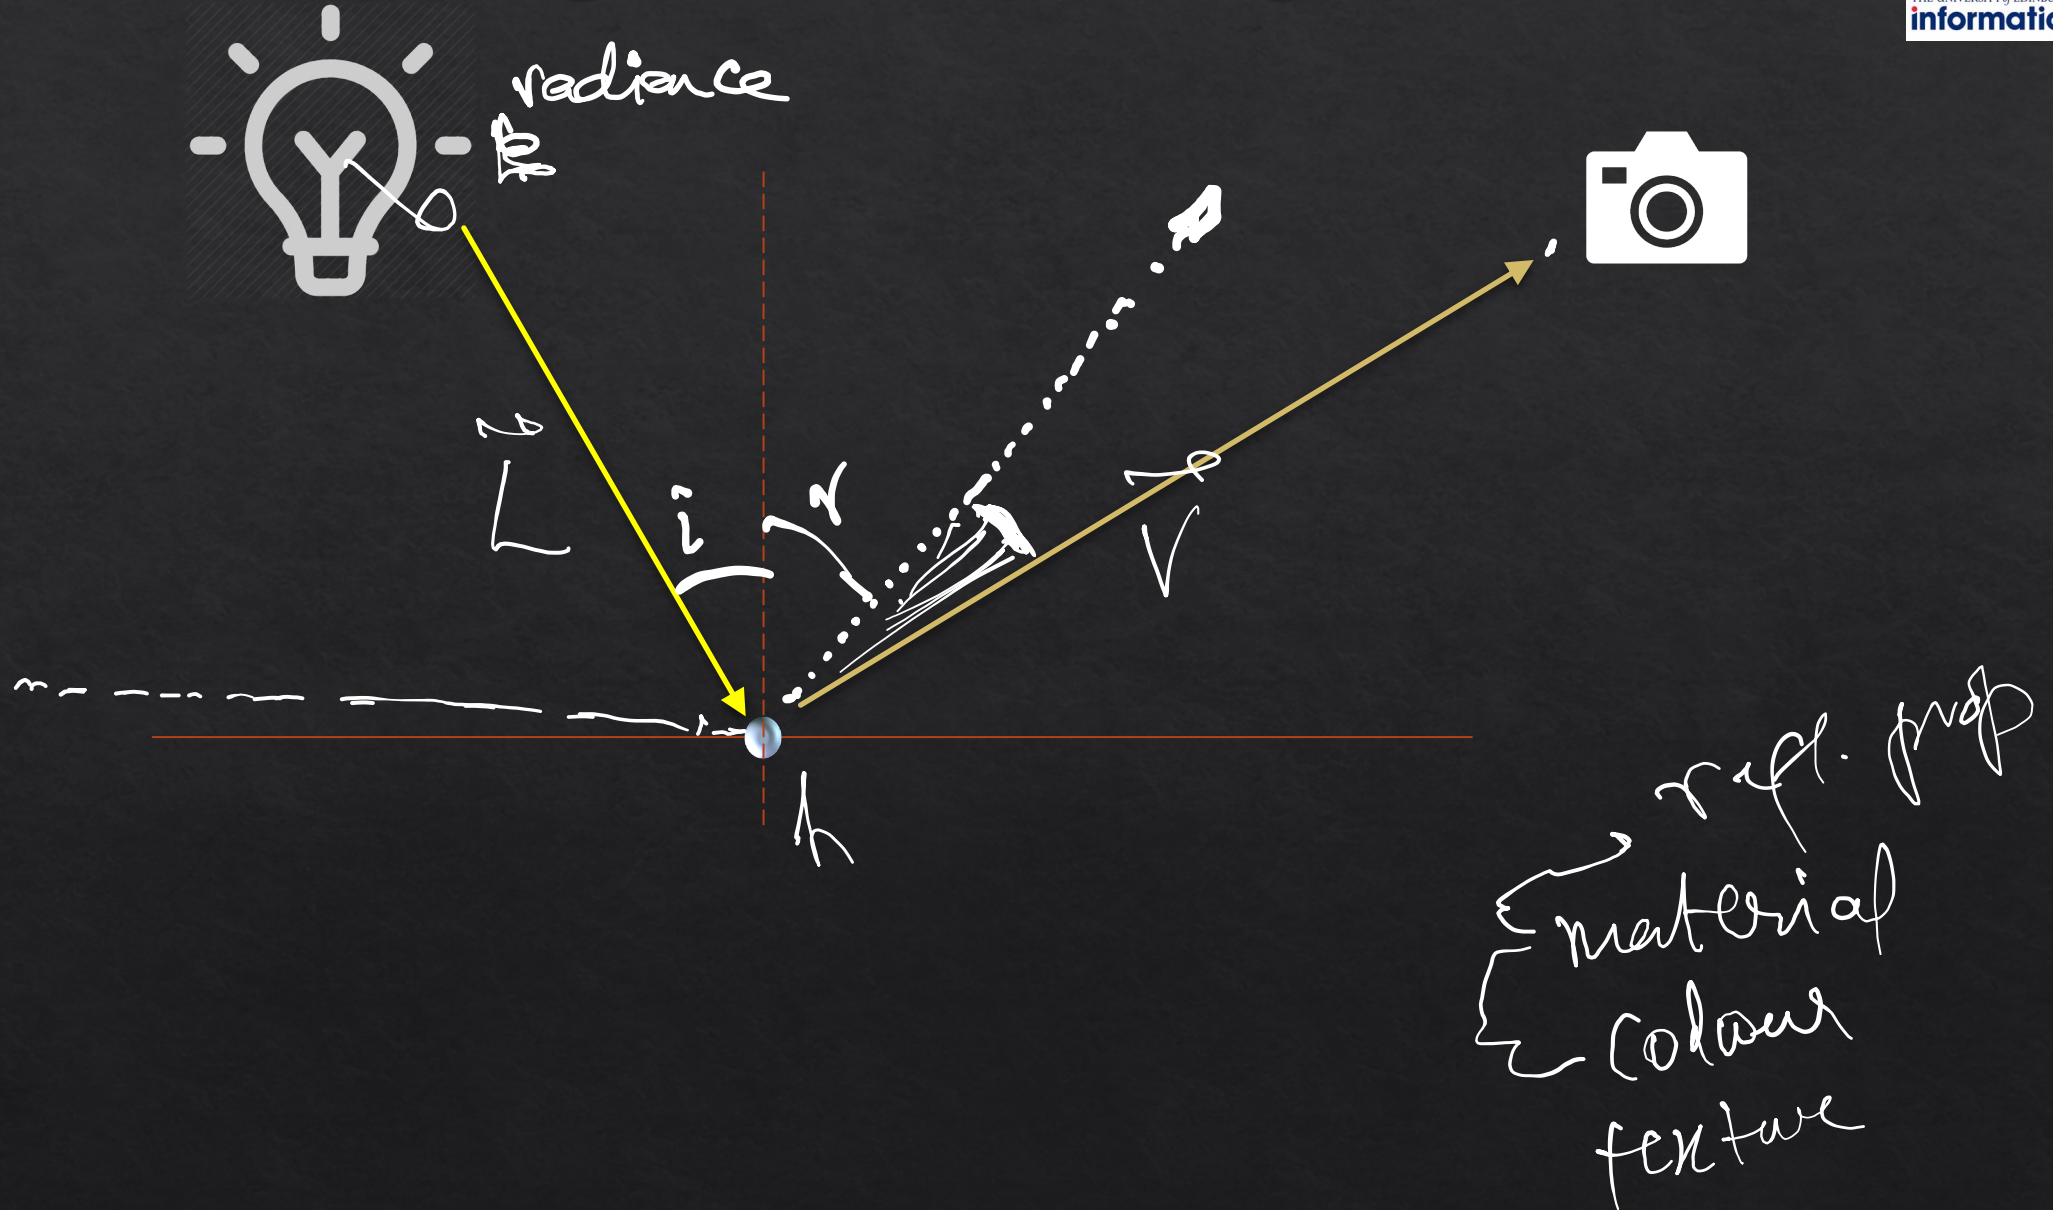 informatic
radiance
L
i
r
V
h
refl. prop
material
colour
texture